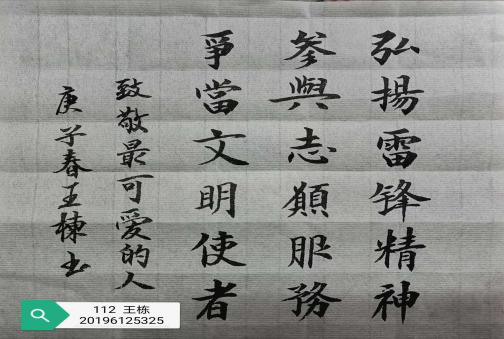 弘揚雷锋精神
參與志願服務
爭當文明使者
致敬最可愛的人
庚子春王棟书
112 王栋
20196125325